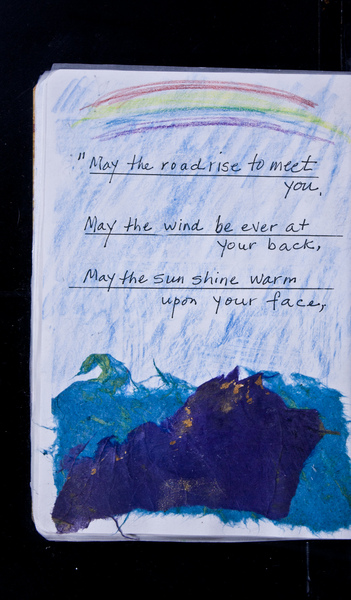 "May the road rise to meet
you,
May the wind be ever at
your back,
May the sun shine warm
upon your face,